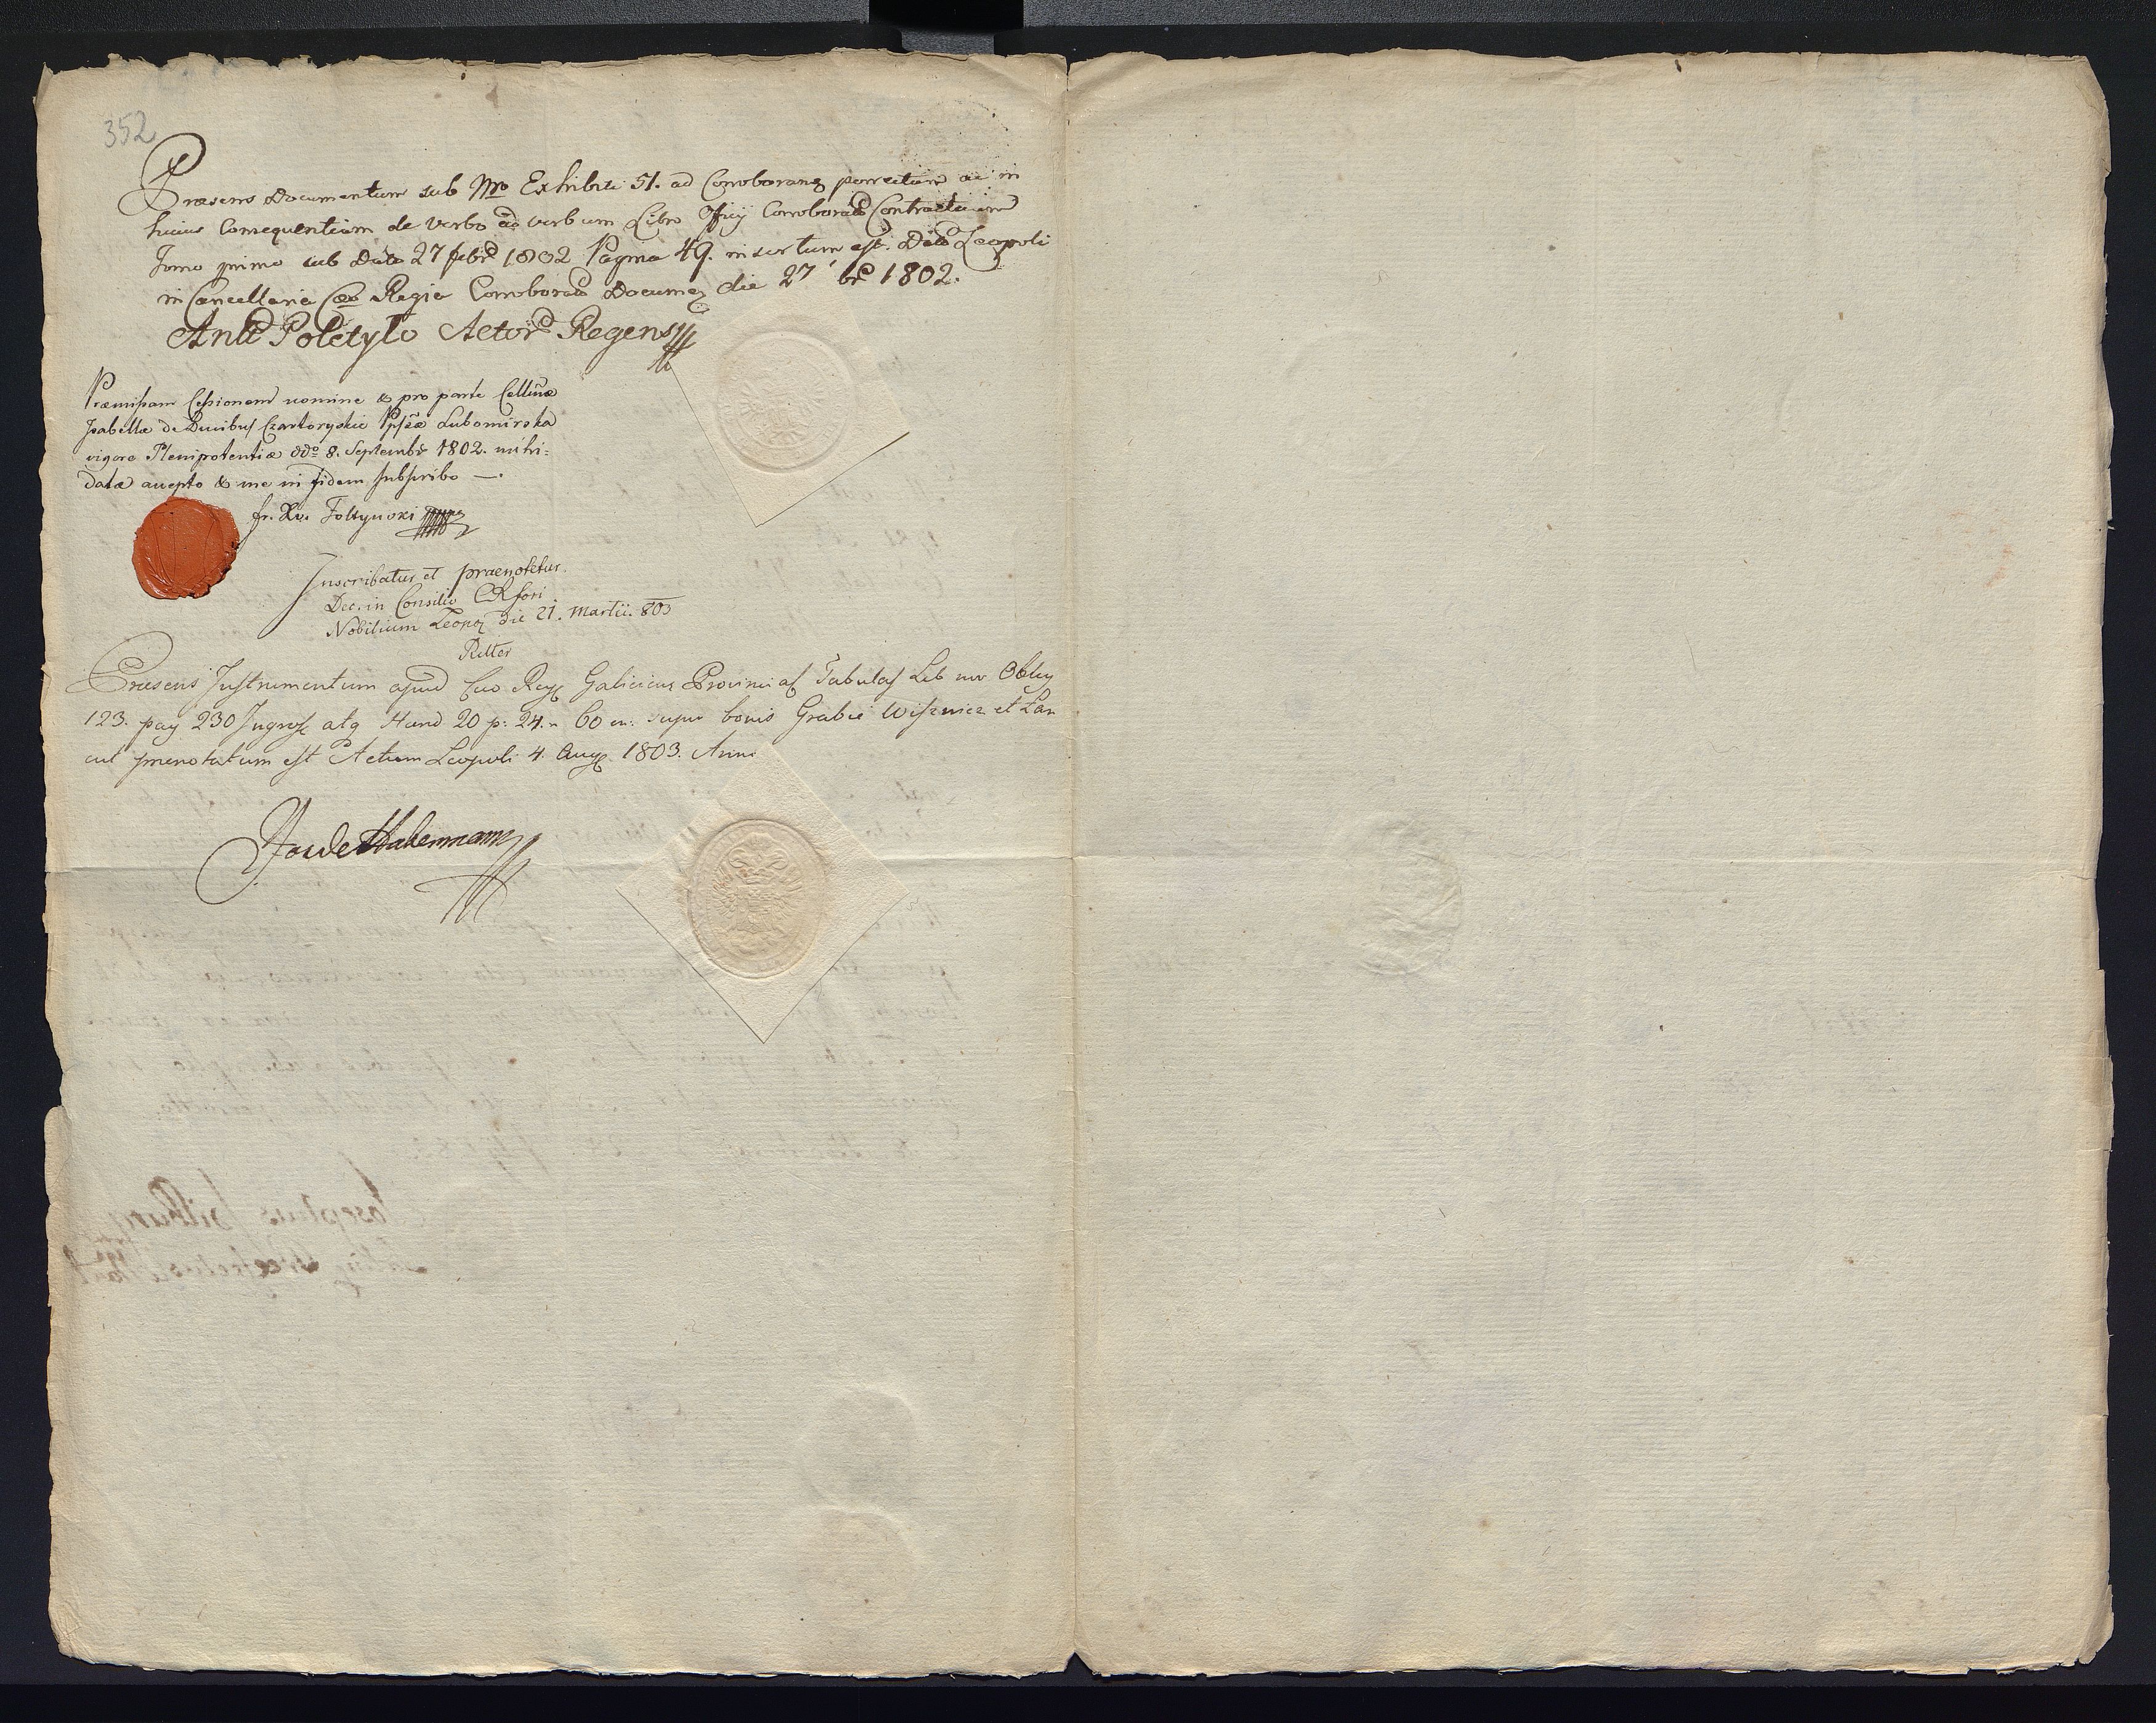 352
Præsens Documentum sub Nro Exhibiti 51. ad Corroborang porrectum ac in
huius Consequentiam de verbo ad verbum Libro Officij Corroborad Contractuum
Tomo primo sub Dato 27 febr 1802 Pagina 49. insertum est. Dato Leopoli
in Cancellaria Cæs Regia Corroborad Documen die 27 br 1802.
Ant Poletylo Actor Regens
Præmissam Cessionem nomine & pro parte Cellmæ
Isabellæ de Ducibus Czartoryskie Lubomirska
vigore Plenipotentiæ ddo 8. Septembr 1802. mihi-
datæ accepto & me in fidem subscribo —.
fr. Xv. Foltynski
Inscribatur et praenotetur.
Dec. in Consilio CR fori
Nobilium Leopol die 21. Martii. 803
Ritter
Præsens Instrumentum apud Cæo Reg Galiciens Provincial Tabulas Lib nov Oblig
123. pag 230 Ingross atq Hæred 20 p: 24. n 60 on: super bonis Grabie Wiśznicz et Łan
cut prænotatum est Actum Leopoli 4. Aug 1803. Anno
Jos de Habermann